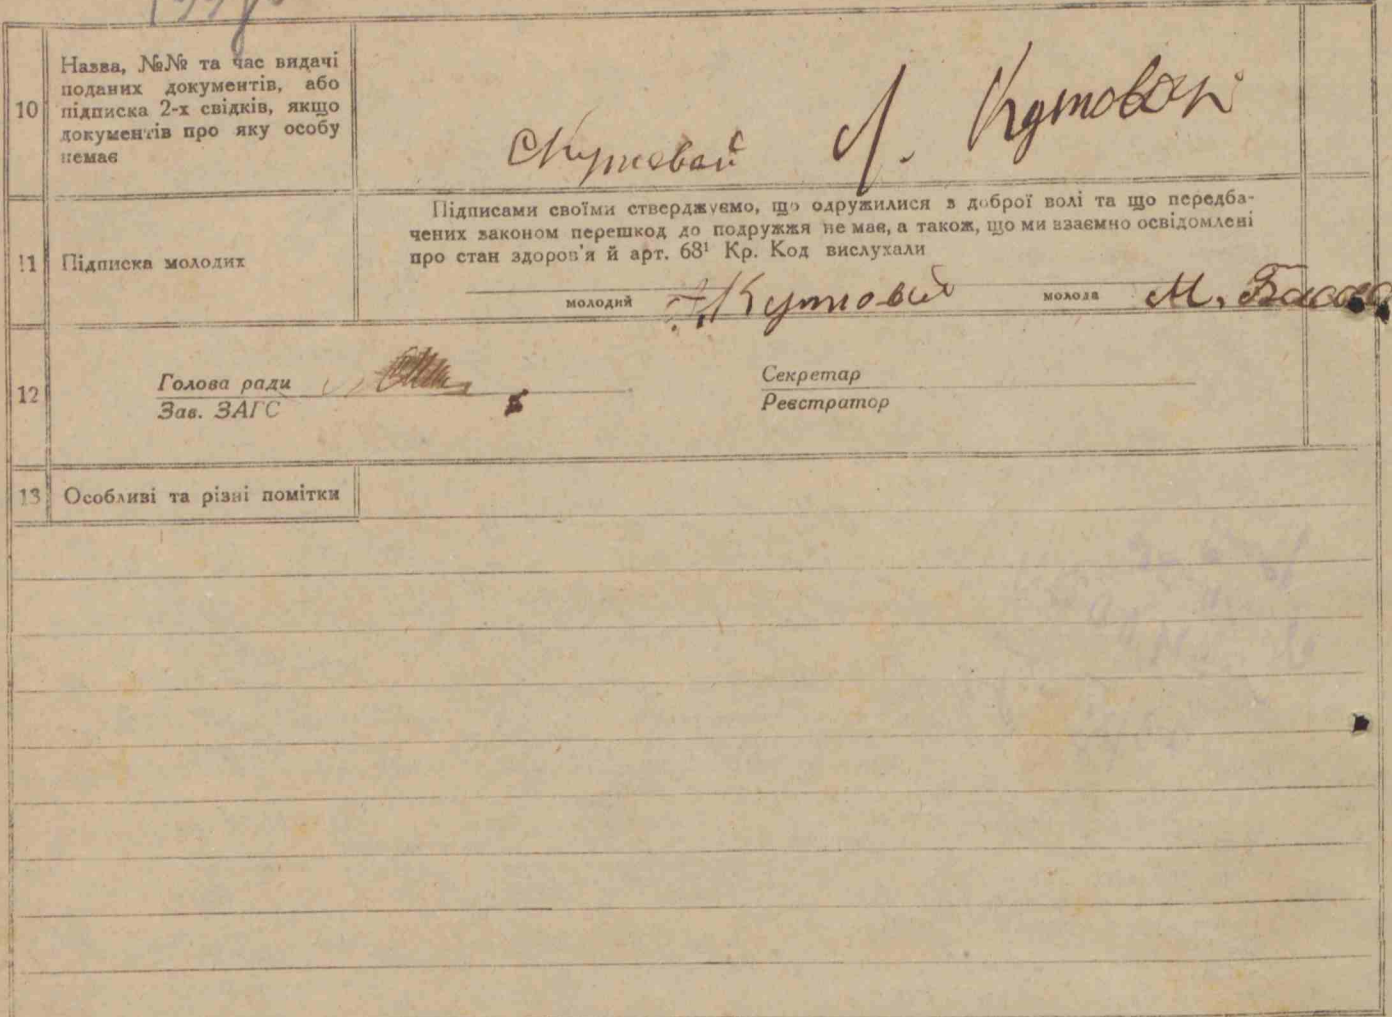 10
Назва, №№ та час видачі
поданих документів, або
підписка 2-х свідків, якщо
документів про яку особу
немає
СКутовай Л. Кутовой
11
Підписка молодих
Підписами своїми стверджуємо, що одружилися з доброї волі та що передба-
чених законом перешкод до подружжя не має, а також, що ми взаємно освідомлені
про стан здоров'я й арт. 68¹ Кр. Код вислухали
молодий Кутовий молода М.
12
Голова ради
Зав. ЗАГС
Секретар
Реєстратор
13
Особливі та різні помітки